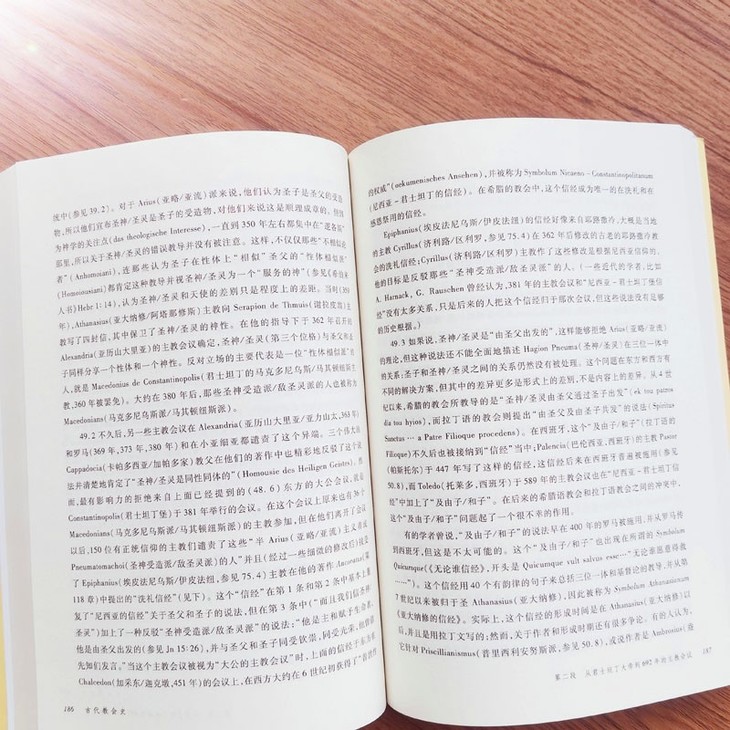 统中(参见 39.2)。对于 Arius(亚略/亚流)派来说,他们认为圣子是圣父的受造
物,所以他们宣布圣神/圣灵是圣子的受造物,对他们来说这是顺理成章的。但因
为神学的关注点(das theologische Interesse),一直到 350 年左右都集中在“逻各斯”
那里,所以关于圣神/圣灵的错误教导并没有被注意。这样,不仅仅那些“不相似
者”(Anhomoians),连那些认为圣子在性体上“相似”圣父的“性体相似派”
(Homoiousians)都肯定这种教导并视圣神/圣灵为一个“服务的神”(参见《希伯
人书》Hebr 1:14),认为圣神/圣灵和天使的差别只是程度上的差距。当时(359
年),Athanasius(亚大纳修/阿塔那修斯)主教向 Serapion de Thmuis(谢拉皮翁)主
教写了四封信,其中保卫了圣神/圣灵的神性。在他的指导下于 362 年召开的
Alexandria(亚历山大里亚)的主教会议确定,圣神/圣灵(第三个位格)与圣父和圣
子同样分享一个性体和一个神性。反对立场的主要代表是一位“性体相似派”的
人,就是 Macedonius de Constantinopolis(君士丁的马克多尼乌斯/马其顿纽斯主
教,360 年被罢免)。大约在 380 年后,那些圣神受造派/敌圣灵派的人也被称为
Macedonians(马克多尼乌斯派/马其顿纽斯派)。
49.2 不久后,另一些主教会议在 Alexandria(亚历山大里亚/亚力山太,363 年)
和罗马(369 年,373 年,380 年)和在小亚细亚都谴责了这个异端。三个伟大的
Cappadocia(卡帕多西亚/加帕多家)教父在他们的著作中也精彩地反驳了这个说
法并清楚地肯定了“圣神/圣灵是同性同体的”(Homousie des Heiligen Geistes)。然
而,最有影响力的拒绝来自上面已经提到的(48.6)东方的大公会议,就是
Constantinopolis(君士坦丁堡)于 381 年举行的会议。在这个会议上原来也有 36 个
Macedonians(马克多尼乌斯派/马其顿纽斯派)的主教参加,但在他们离开了会议
以后,150 位有正统信仰的主教们谴责了这些“半 Arius(亚略/亚流)主义者或
Pneumatomachoi(圣神受造派/敌圣灵派)的人”并且(经过一些细微的修改后)接受
了 Epiphanius(埃皮法尼乌斯/伊皮法纽,参见 75.4)主教在他的著作 Ancoratus(第
118 章)中提出的“洗礼信经”(见下)。这个“信经”在第 1 条和第 2 条中基本上重
复了“尼西亚的信经”关于圣父和圣子的说法,但在第 3 条中(“而且我们信圣神/
圣灵”)加上了一种反驳“圣神受造派/敌圣灵派”的说法:“他是主和赋予生命者,
他是由圣父出发的(参见 Jn 15:26),并与圣父和圣子同受钦崇,同受光荣,他曾藉
先知们发言。”当这个主教会议被视为“大公的主教会议”时,上面的信经于东方在
Chalcedon(加采东/迦克墩,451 年)的会议上,在西方大约在 6 世纪初获得了“普世性
186 古代教会史
的权威”(oekumenisches Ansehen),并被称为 Symbolum Nicaeno-Constantinopolitanum
(尼西亚-君士坦丁的信经)。在希腊的教会中,这个信经成为唯一的在洗礼和在
感恩祭用的信经。
Epiphanius(埃皮法尼乌斯/伊皮法纽)的信经好像来自耶路撒冷,大概是当地
的主教 Cyrillus(济利路/区利罗,参见 75.4)在 362 年后修改的古老的耶路撒冷教
会的洗礼信经;Cyrillus(济利路/区利罗)主教作了这些修改是根据尼西亚信仰的,
他的目标是反驳那些“圣神受造派/敌圣灵派”的人。(一些近代的学者,比如
A. Harnack, G. Rauschen 曾经认为,381 年的主教会议和“尼西亚-君士坦丁堡信
经”没有太多关系,只是后来的人把这个信经归于那次会议,但这些说法没有足够
的历史根据。)
49.3 如果说,圣神/圣灵是“由圣父出发的”,这样能够拒绝 Arius(亚略/亚流)
的理论,但这种说法还不能全面地描述 Hagion Pneuma(圣神/圣灵)在三位一体中
的关系:圣子和圣神/圣灵之间的关系仍然没有被处理。这个问题在东方和西方有
不同的解决方案,但其中的差异更多是形式上的差别,不是内容上的差异。从 4 世
纪以来,希腊的教会所教导的是“圣神/圣灵由圣父透过圣子出发”(ek tou patros
dia tou hyiou),而拉丁语的教会则提出“由圣父及由圣子共发”的说法(Spiritus
Sanctus … a Patre Filioque procedens)。在西班牙,这个“及由子/和子”(拉丁 Poster
Filioque)不久后也被接纳到“信经”当中;Palencia(巴伦西亚,西班牙)的主教 Pastor
(帕斯托尔)于 447 年写了这样的信经,这信经后来在西班牙普遍被通用(参见
50.8),而 Toledo(托莱多,西班牙)于 589 年的主教会议也在“尼西亚-君士坦丁信
经”中加上了“及由子/和子”。在后来的希腊语教会和拉丁语教会之间的冲突中,
这个“及由子/和子”问题起了一个很不幸的作用。
有的学者曾说,“及由子/和子”的说法早在 400 年的罗马被施用,并从罗马传
到西班牙,但这是不太可能的。这个“及由子/和子”也出现在所谓的 Symbolum
Quicumque(《无论谁信经》,开头是 Quicumque vult salvus esse…“无论谁愿意得救
……”)。这个信经用 40 个有韵律的句子来总括三位一体和基督论的教导,并从第
7 世纪以来被归于圣 Athanasius(亚大纳修),因此被称为 Symbolum Athanasianum
《亚大纳修的信经》。实际上,这个信经的形成时间是在 Athanasius(亚大纳修)以
后,并且是用拉丁文写的;然而,关于作者和形成时期还有很多争论。有的人认为,
它针对 Priscillianismus(普里西利安努斯派,参见 50.8),或说作者是 Ambrosius(盎
第二段 从君士坦丁大帝到 692 年的主教会议 187